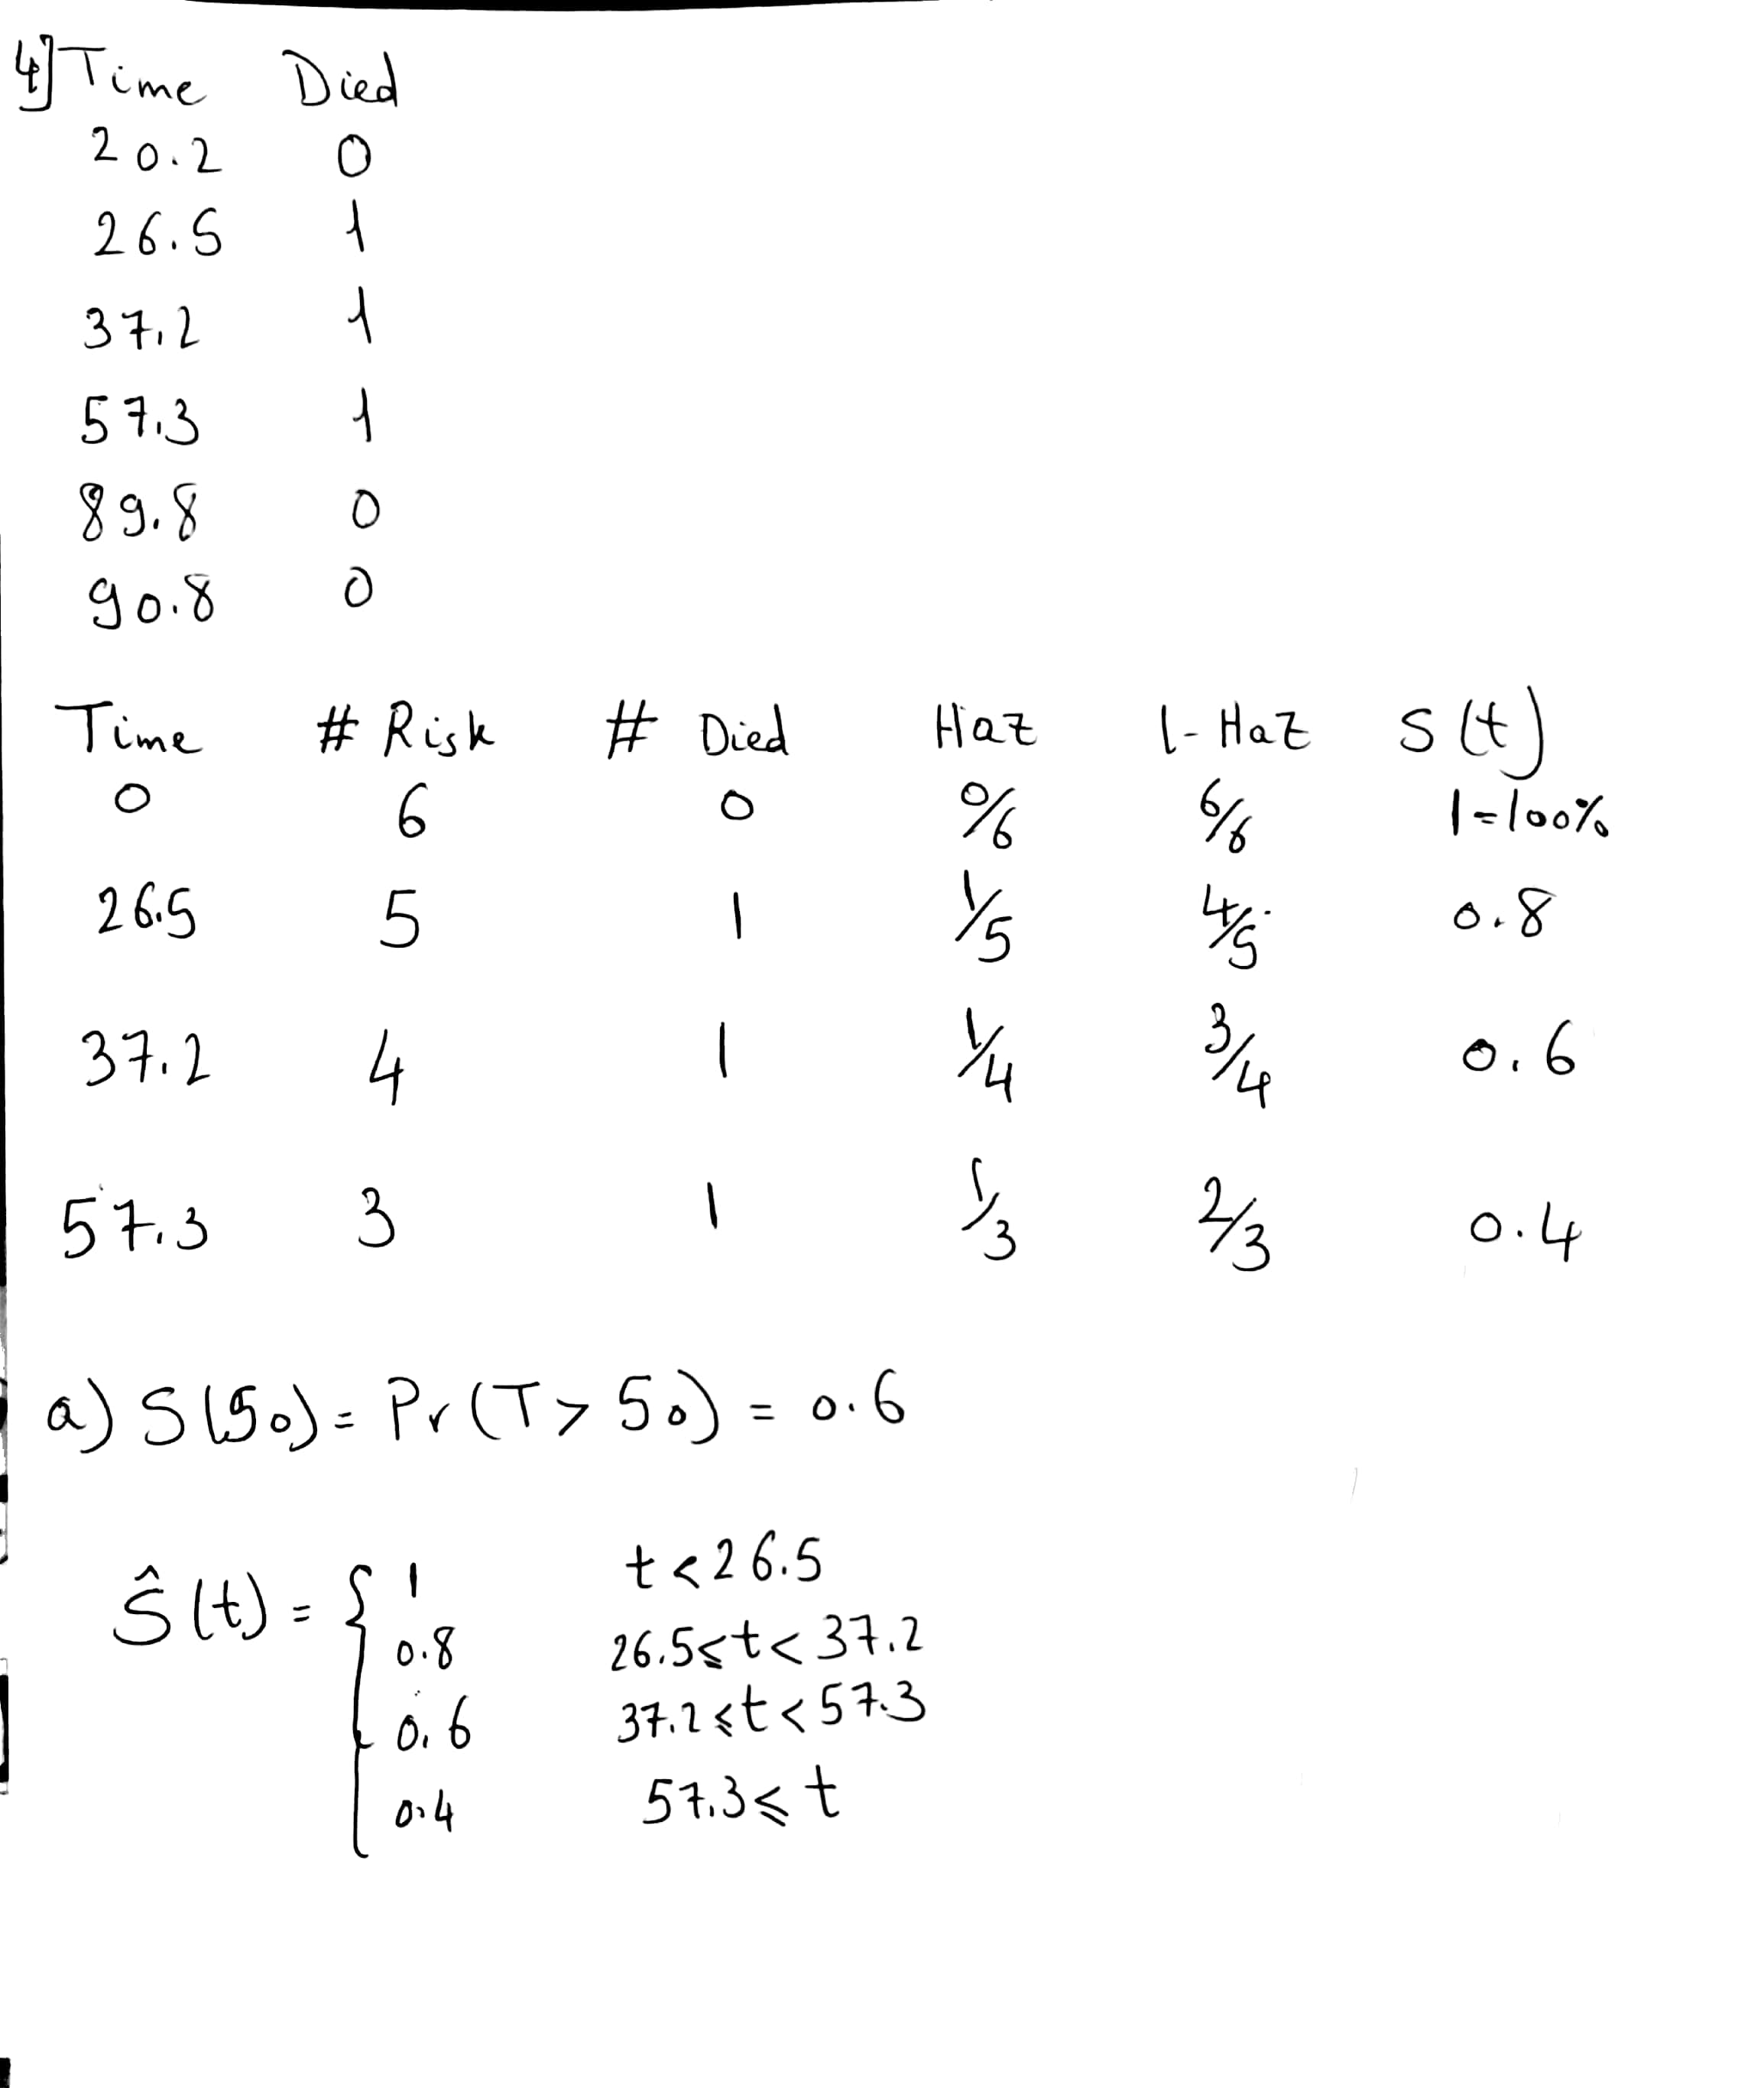 4] Time Died
20.2 0
26.5 1
37.2 1
57.3 1
89.8 0
90.8 0
Time # Risk # Died Haz 1-Haz S(t)
0 6 0 0/6 6/6 1=100%
26.5 5 1 1/5 4/5 0.8
37.2 4 1 1/4 3/4 0.6
57.3 3 1 1/3 2/3 0.4
a) S(50) = Pr(T > 50) = 0.6
Ŝ(t) = { 1 t < 26.5
0.8 26.5 ≤ t < 37.2
0.6 37.2 ≤ t < 57.3
0.4 57.3 ≤ t